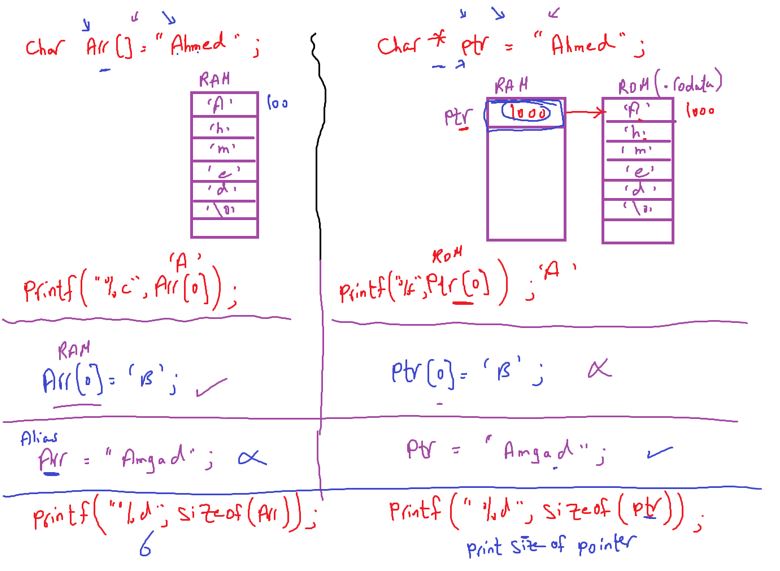 Char Arr[] = "Ahmed" ;
RAM
'A' 100
'h'
'm'
'e'
'd'
'\0'
'A'
Printf("%c", Arr[0]) ;
RAM
Arr[0] = 'B' ; ✓
Alias
Arr = "Amgad" ; ∝
Printf("%d", sizeof(Arr)) ;
6
Char * ptr = "Ahmed" ;
RAM
ROM (.rodata)
Ptr 1000
'A' 1000
'h'
'm'
'e'
'd'
'\0'
ROM
Printf("%c", Ptr[0]) ; 'A'
Ptr[0] = 'B' ; ∝
Ptr = "Amgad" ; ✓
Printf("%d", sizeof(ptr)) ;
print size of pointer